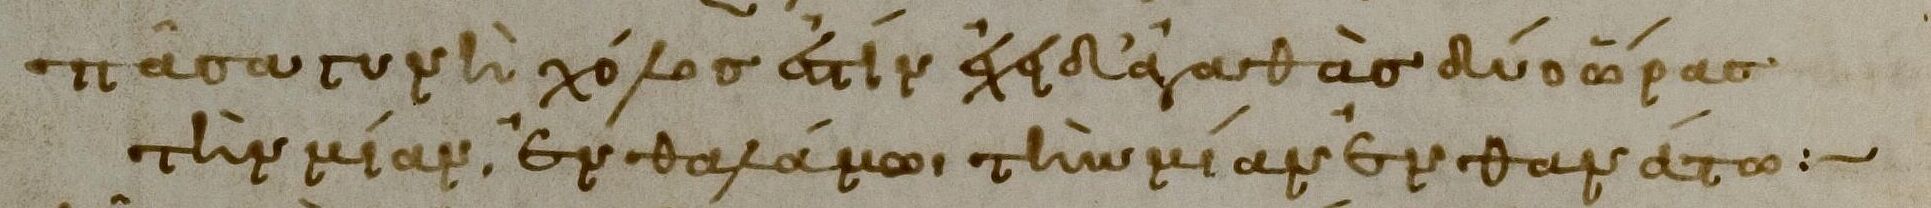 πᾶσα γυνὴ χόλος ἐστὶν ἔχει δ' ἀγαθὰς δύο ὥρας
τὴν μίαν, ἐν θαλάμω, τὴν μίαν ἐν θανάτω :~